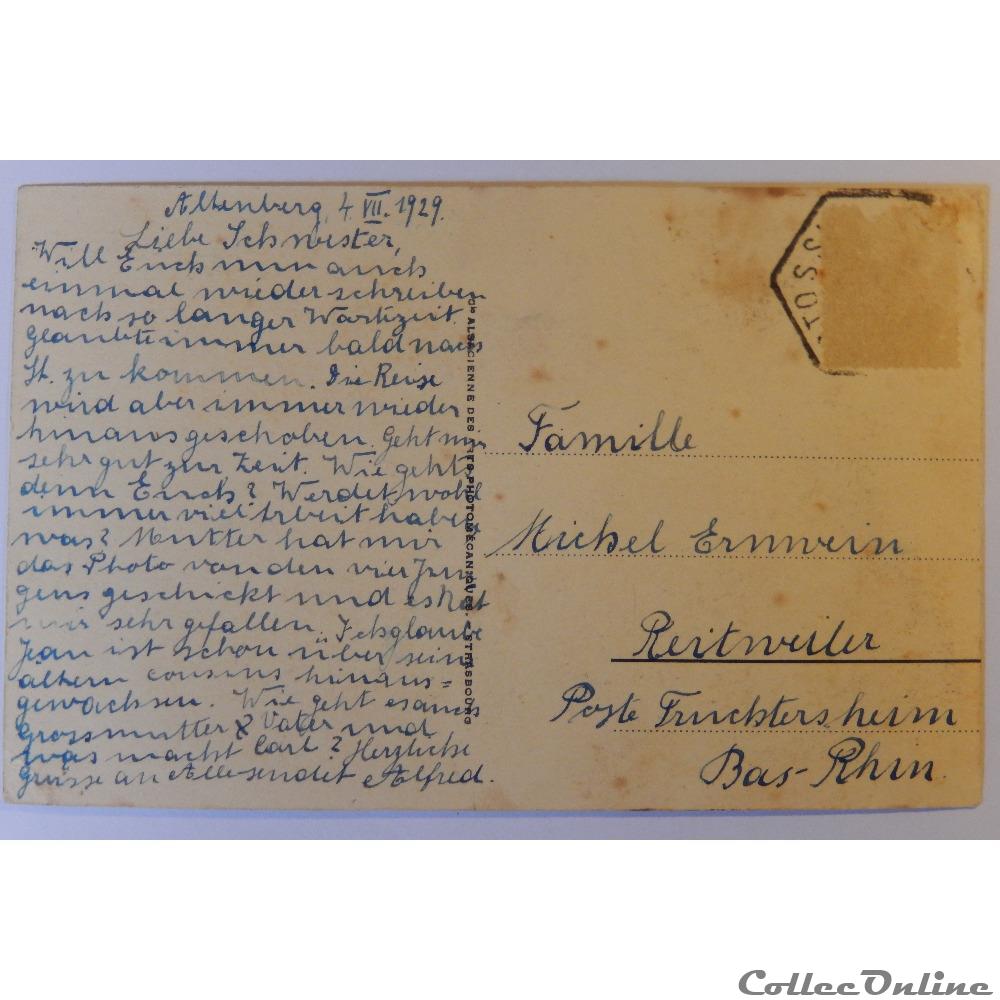 Altenberg, 4 VII. 1929.
Liebe Schwester,
Will Euch nun auch
einmal wieder schreiben
nach so langer Wartezeit.
Glaubte immer bald nach
St. zu kommen. Die Reise
wird aber immer wieder
hinausgeschoben. Geht mir
sehr gut zur Zeit. Wie geht's
denn Euch? Werdet wohl
immer viel Arbeit haben
was? Mutter hat mir
das Photo von den vier Jun
gens geschickt und es hat
mir sehr gefallen. Ich glaube
Jean ist schon über sein
altern cousins hinaus=
gewachsen. Wie geht es auch
Grossmutter & Vater und
was macht Carl? Herzliche
Grüsse an Alle sendet Alfred.
Cie ALSACIENNE DES ARTS PHOTOMÉCANIQUES, STRASBOURG
Famille
Michel Ernwein
Reitweiler
Poste Truchtersheim
Bas-Rhin.
CollecOnline